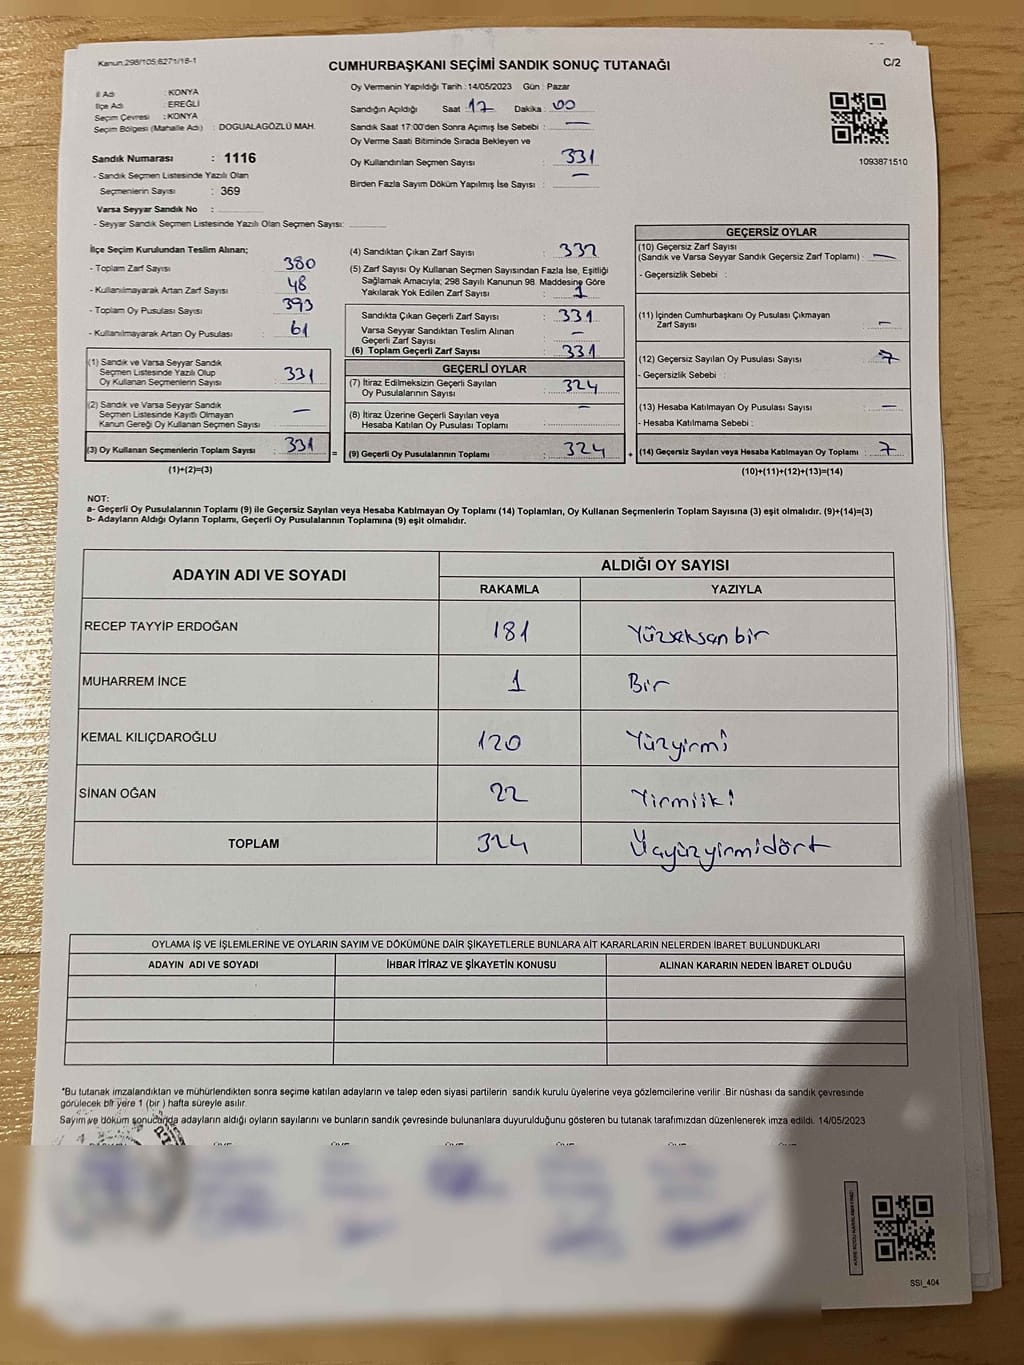 Kanun:298/105,6271/18-1
CUMHURBAŞKANI SEÇİMİ SANDIK SONUÇ TUTANAĞI
C/2
İl Adı : KONYA
İlçe Adı : EREĞLİ
Seçim Çevresi : KONYA
Seçim Bölgesi (Mahalle Adı) : DOGUALAGÖZLÜ MAH.
Sandık Numarası : 1116
- Sandık Seçmen Listesinde Yazılı Olan
Seçmenlerin Sayısı : 369
Varsa Seyyar Sandık No :
- Seyyar Sandık Seçmen Listesinde Yazılı Olan Seçmen Sayısı:
Oy Vermenin Yapıldığı Tarih : 14/05/2023 Gün : Pazar
Sandığın Açıldığı Saat : 17 Dakika : 00
Sandık Saat 17:00'den Sonra Açımış İse Sebebi : —
Oy Verme Saati Bitiminde Sırada Bekleyen ve
Oy Kullandırılan Seçmen Sayısı : 331
Birden Fazla Sayım Döküm Yapılmış İse Sayısı : —
1093871510
İlçe Seçim Kurulundan Teslim Alınan;
- Toplam Zarf Sayısı : 380
- Kullanılmayarak Artan Zarf Sayısı : 48
- Toplam Oy Pusulası Sayısı : 393
- Kullanılmayarak Artan Oy Pusulası : 61
(1) Sandık ve Varsa Seyyar Sandık
Seçmen Listesinde Yazılı Olup
Oy Kullanan Seçmenlerin Sayısı : 331
(2) Sandık ve Varsa Seyyar Sandık
Seçmen Listesinde Kayıtlı Olmayan
Kanun Gereği Oy Kullanan Seçmen Sayısı : —
(3) Oy Kullanan Seçmenlerin Toplam Sayısı : 331
(1)+(2)=(3)
=
(4) Sandıktan Çıkan Zarf Sayısı : 332
(5) Zarf Sayısı Oy Kullanan Seçmen Sayısından Fazla İse, Eşitliği
Sağlamak Amacıyla; 298 Sayılı Kanunun 98. Maddesine Göre
Yakılarak Yok Edilen Zarf Sayısı : 1
Sandıkta Çıkan Geçerli Zarf Sayısı : 331
Varsa Seyyar Sandıktan Teslim Alınan
Geçerli Zarf Sayısı : —
(6) Toplam Geçerli Zarf Sayısı : 331
GEÇERLİ OYLAR
(7) İtiraz Edilmeksizin Geçerli Sayılan
Oy Pusulalarının Sayısı : 324
(8) İtiraz Üzerine Geçerli Sayılan veya
Hesaba Katılan Oy Pusulası Toplamı : —
(9) Geçerli Oy Pusulalarının Toplamı : 324
+
GEÇERSİZ OYLAR
(10) Geçersiz Zarf Sayısı
(Sandık ve Varsa Seyyar Sandık Geçersiz Zarf Toplamı) : —
- Geçersizlik Sebebi :
(11) İçinden Cumhurbaşkanı Oy Pusulası Çıkmayan
Zarf Sayısı : —
(12) Geçersiz Sayılan Oy Pusulası Sayısı : 7
- Geçersizlik Sebebi :
(13) Hesaba Katılmayan Oy Pusulası Sayısı : —
- Hesaba Katılmama Sebebi :
(14) Geçersiz Sayılan veya Hesaba Katılmayan Oy Toplamı : 7
(10)+(11)+(12)+(13)=(14)
NOT:
a- Geçerli Oy Pusulalarının Toplamı (9) ile Geçersiz Sayılan veya Hesaba Katılmayan Oy Toplamı (14) Toplamları, Oy Kullanan Seçmenlerin Toplam Sayısına (3) eşit olmalıdır. (9)+(14)=(3)
b- Adayların Aldığı Oyların Toplamı, Geçerli Oy Pusulalarının Toplamına (9) eşit olmalıdır.
ADAYIN ADI VE SOYADI
ALDIĞI OY SAYISI
RAKAMLA YAZIYLA
RECEP TAYYİP ERDOĞAN 181 Yüzseksen bir
MUHARREM İNCE 1 Bir
KEMAL KILIÇDAROĞLU 120 Yüzyirmi
SİNAN OĞAN 22 Yirmiiki
TOPLAM 324 Üçyüzyirmidört
OYLAMA İŞ VE İŞLEMLERİNE VE OYLARIN SAYIM VE DÖKÜMÜNE DAİR ŞİKAYETLERLE BUNLARA AİT KARARLARIN NELERDEN İBARET BULUNDUKLARI
ADAYIN ADI VE SOYADI İHBAR İTİRAZ VE ŞİKAYETİN KONUSU ALINAN KARARIN NEDEN İBARET OLDUĞU
*Bu tutanak imzalandıktan ve mühürlendikten sonra seçime katılan adayların ve talep eden siyasi partilerin sandık kurulu üyelerine veya gözlemcilerine verilir .Bir nüshası da sandık çevresinde
görülecek bir yere 1 (bir ) hafta süreyle asılır.
Sayım ve döküm sonucunda adayların aldığı oyların sayılarını ve bunların sandık çevresinde bulunanlara duyurulduğunu gösteren bu tutanak tarafımızdan düzenlenerek imza edildi. 14/05/2023
SSI_404